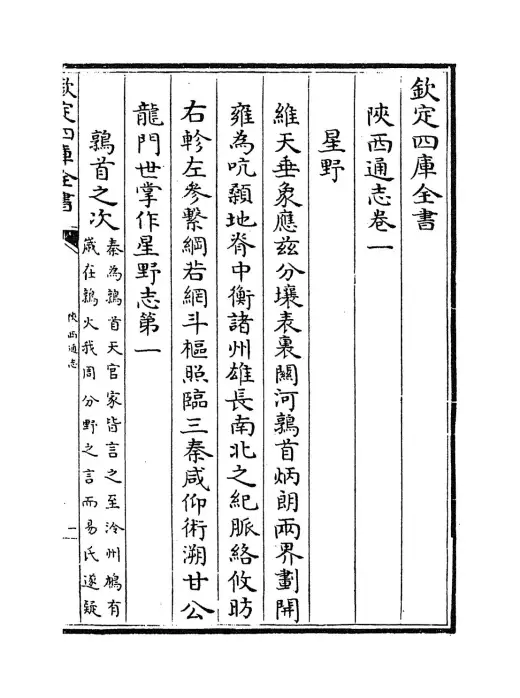 欽定四庫全書
陜西通志卷一
星野
維天垂象應兹分壤表裏關河鶉首炳朗兩界劃開
雍為吭顙地脊中衡諸州雄長南北之紀脈絡攸昉
右軫左參繫綱若網斗樞照臨三秦咸仰術溯甘公
龍門世掌作星野志第一
鶉首之次
秦為鶉首天官家皆言之至泠州鳩有
歲在鶉火我周分野之言而易氏遂疑
欽定四庫全書
陜西通志
一